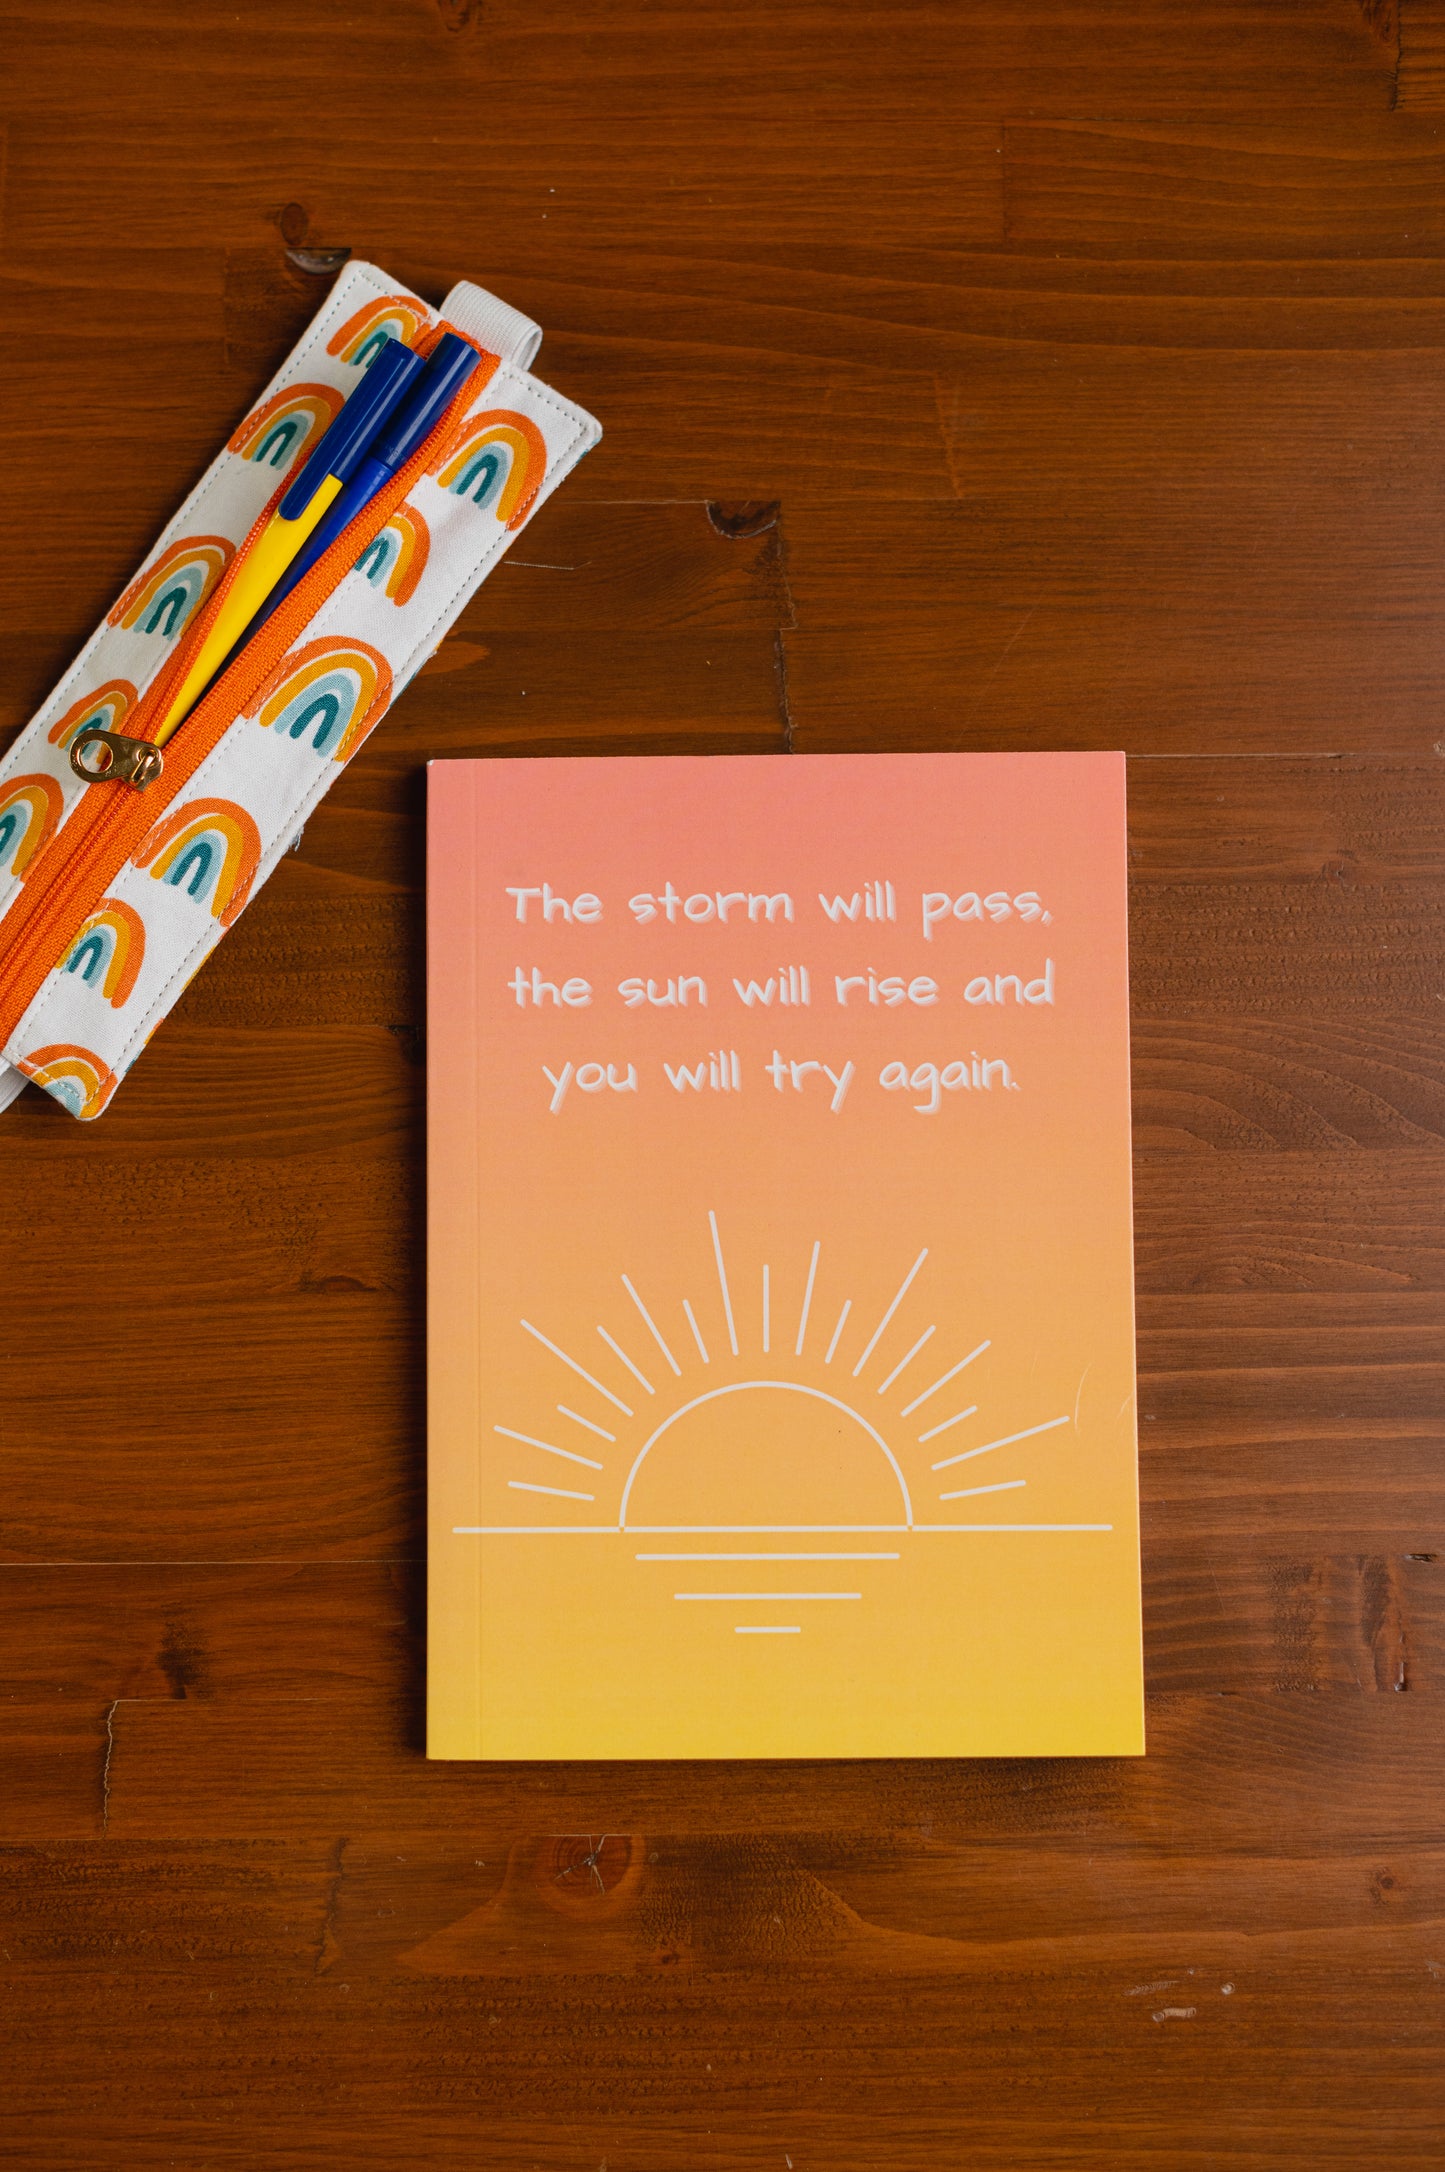 The storm will pass,
the sun will rise and
you will try again.